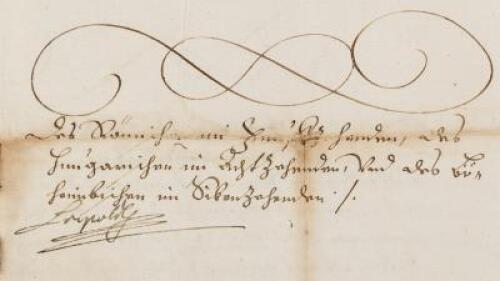 des Römischen im Fünffzehenden, des
Hungarischen im Achtzehenden, Vnd des Bö-
heimbischen im Sibenzehenden /.
Leopold